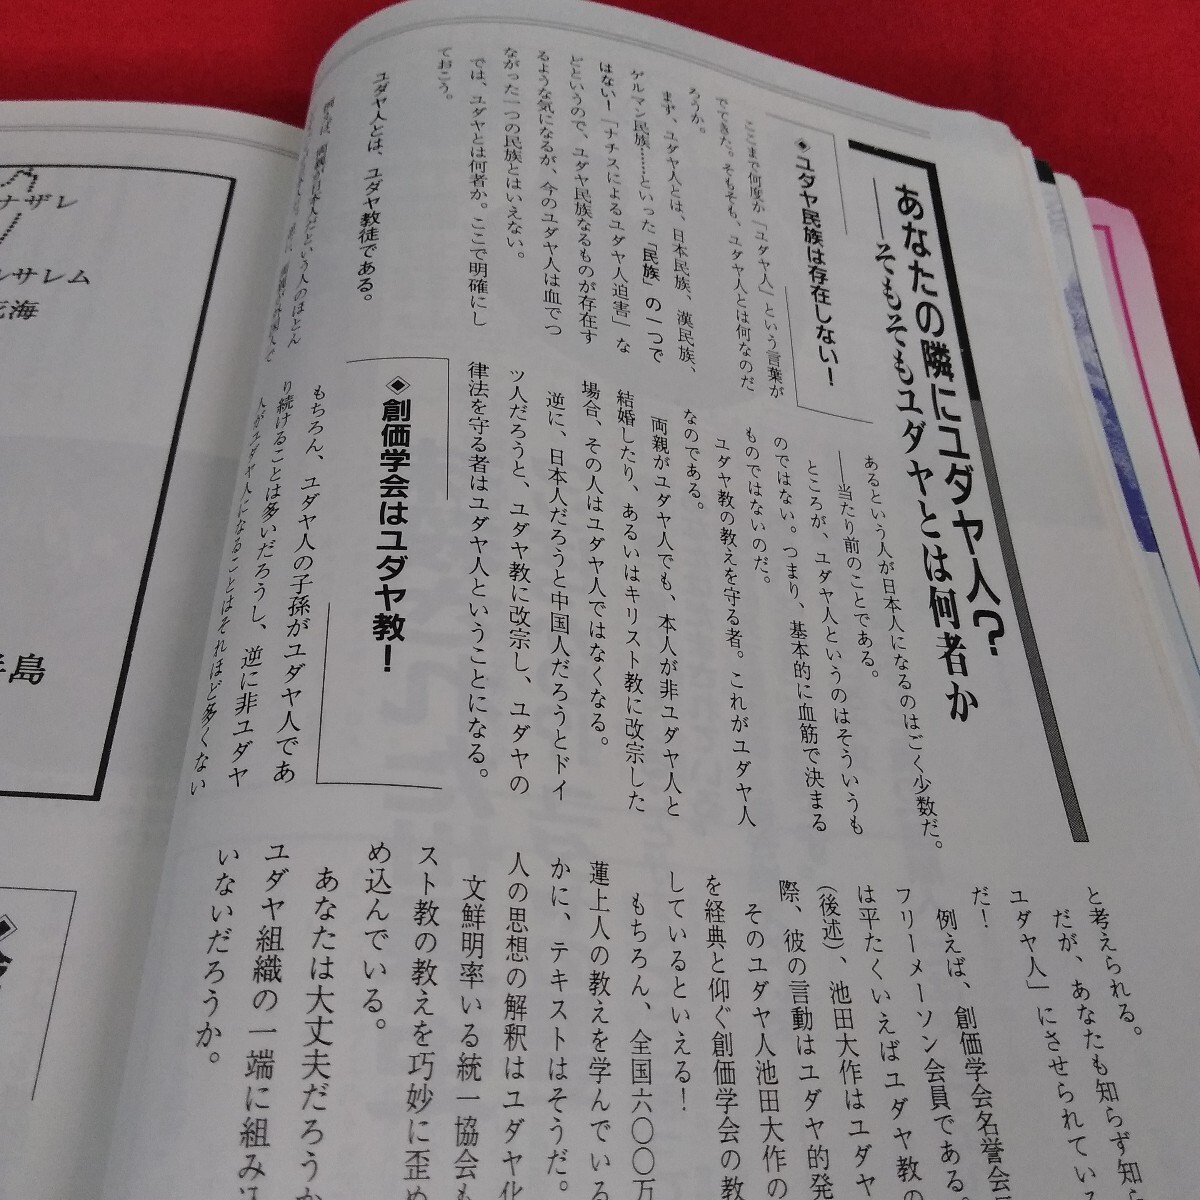 あなたの隣にユダヤ人?
――そもそもユダヤとは何者か
◈ユダヤ民族は存在しない!
ここまで何度か「ユダヤ人」という言葉が
でてきた。そもそも、ユダヤ人とは何なのだ
ろうか。
まず、ユダヤ人とは、日本民族、漢民族、
ゲルマン民族……といった「民族」の一つで
はない!「ナチスによるユダヤ人迫害」な
どというので、ユダヤ民族なるものが存在す
るような気になるが、今のユダヤ人は血でつ
ながった一つの民族とはいえない。
では、ユダヤとは何者か。ここで明確にし
ておこう。
ユダヤ人とは、ユダヤ教徒である。
例えば、両親が日本人だという人のほとん
あるという人が日本人になるのはごく少数だ。
――当たり前のことである。
ところが、ユダヤ人というのはそういうも
のではない。つまり、基本的に血筋で決まる
ものではないのだ。
ユダヤ教の教えを守る者。これがユダヤ人
なのである。
両親がユダヤ人でも、本人が非ユダヤ人と
結婚したり、あるいはキリスト教に改宗した
場合、その人はユダヤ人ではなくなる。
逆に、日本人だろうと中国人だろうとドイ
ツ人だろうと、ユダヤ教に改宗し、ユダヤの
律法を守る者はユダヤ人ということになる。
◈創価学会はユダヤ教!
もちろん、ユダヤ人の子孫がユダヤ人であ
り続けることは多いだろうし、逆に非ユダヤ
人がユダヤ人になることはそれほど多くない
と考えられる。
だが、あなたも知らず知ら
ユダヤ人」にさせられている
だ!
例えば、創価学会名誉会
フリーメーソン会員である。
は平たくいえばユダヤ教の
(後述)、池田大作はユダヤ
際、彼の言動はユダヤ的発
そのユダヤ人池田大作の
を経典と仰ぐ創価学会の教
しているといえる!
もちろん、全国六〇〇万
蓮上人の教えを学んでいる
かに、テキストはそうだ。
人の思想の解釈はユダヤ化
文鮮明率いる統一協会も
スト教の教えを巧妙に歪め
め込んでいる。
あなたは大丈夫だろうか
ユダヤ組織の一端に組み込
いないだろうか。
ナザレ
ルサレム
死海
半島